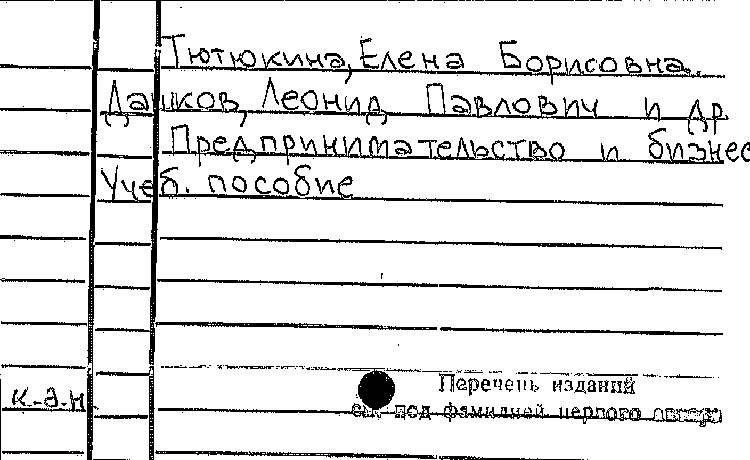 Тютюкина, Елена Борисовна.
Дашков, Леонид Павлович и др
Предпринимательство и бизнес
Учеб. пособие
Перечень изданий
см. под фамилией первого автора
к-э-н